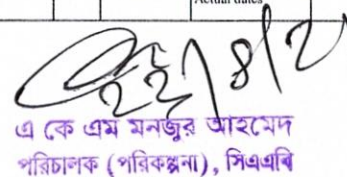 Actual dates
২২/৪/২
এ কে এম মনজুর আহমেদ
পরিচালক (পরিকল্পনা), সিএএবি